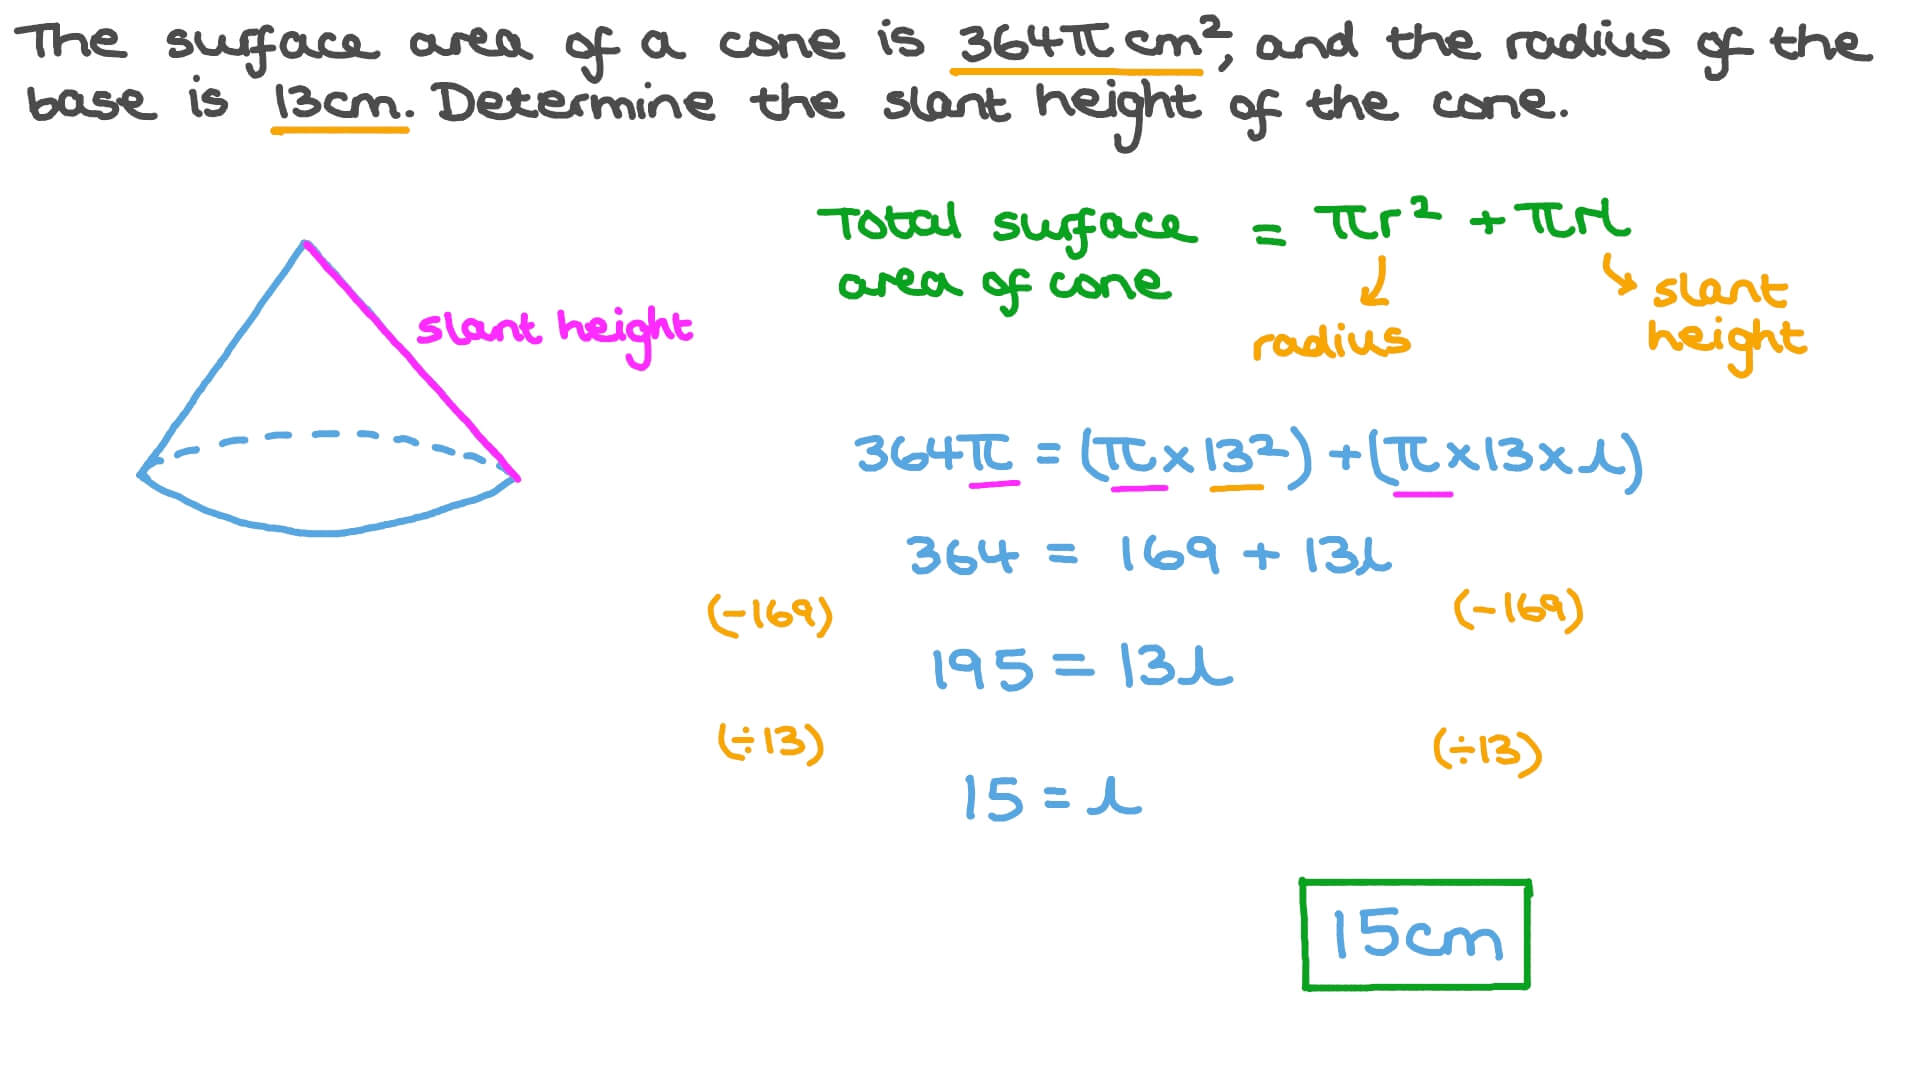 The surface area of a cone is 364π cm², and the radius of the
base is 13cm. Determine the slant height of the cone.
Total surface area of cone = πr² + πrl
radius
slant height
slant height
364π = (π×13²) + (π×13×l)
364 = 169 + 13l
(-169) (-169)
195 = 13l
(÷13) (÷13)
15 = l
15cm